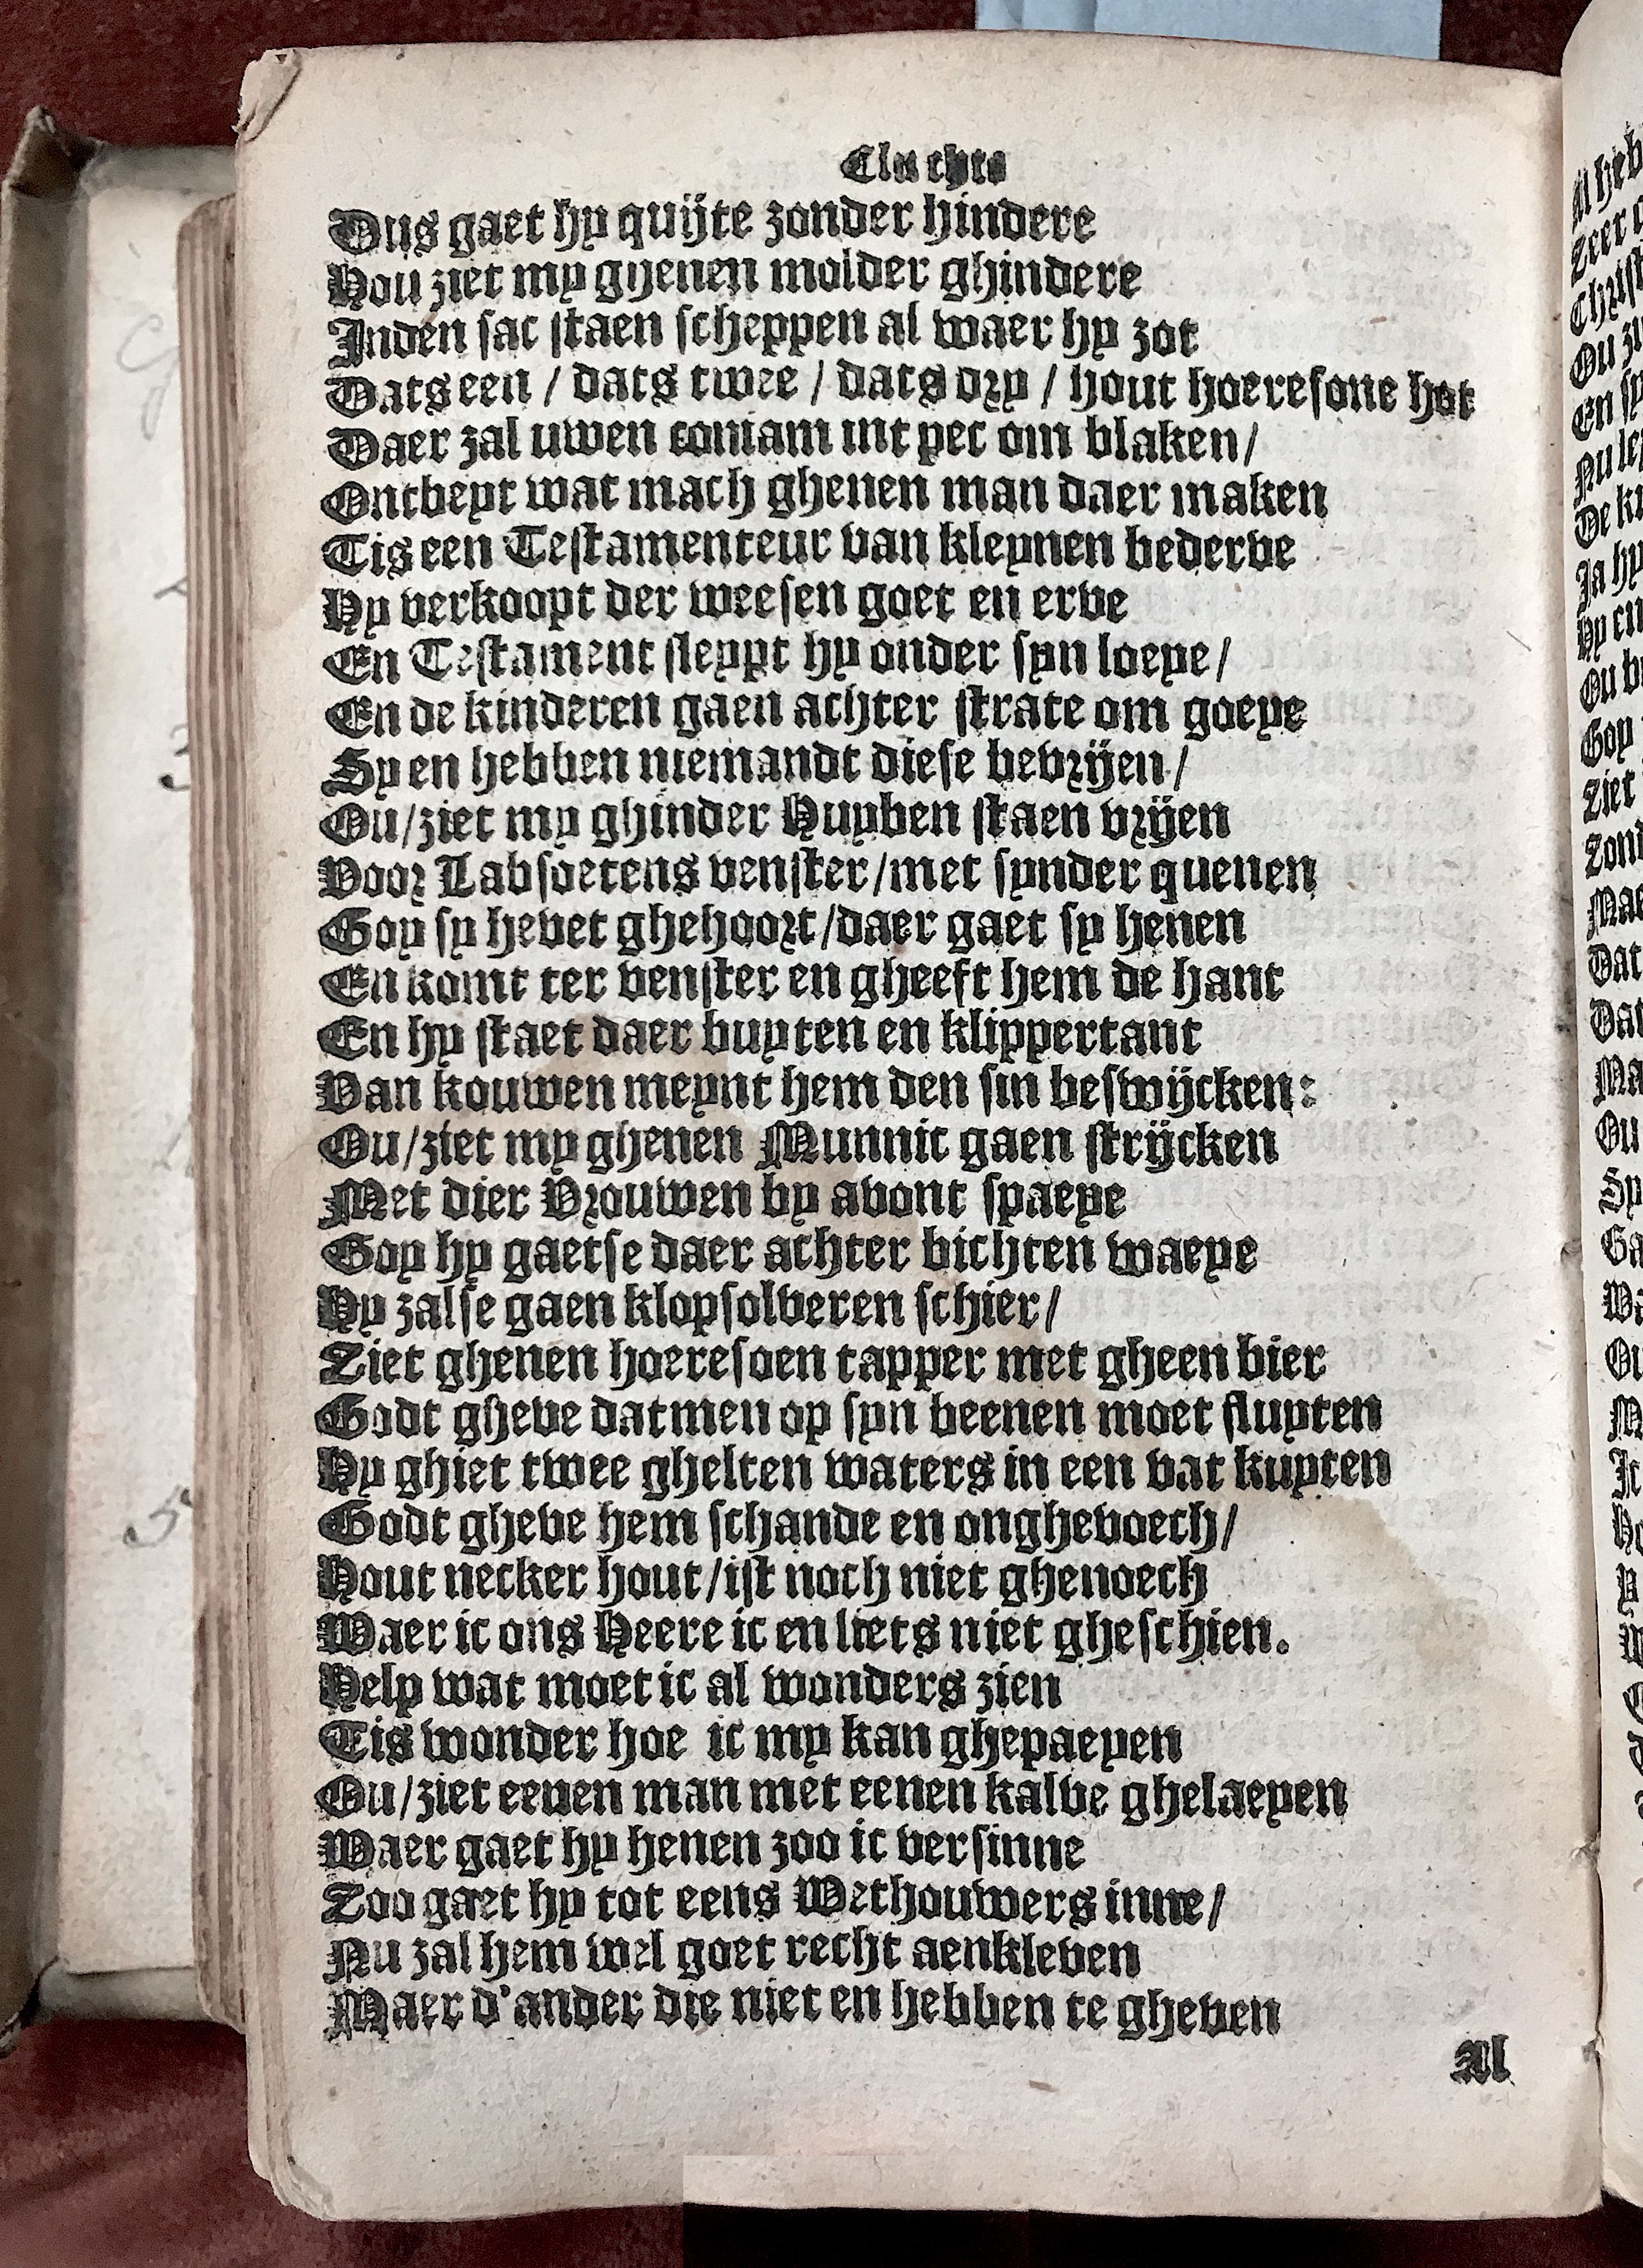 Cluchte
Dus gaet hy quijte zonder hindere
Hou ziet my ghenen molder ghindere
Inden sac staen scheppen al waer hy zot
Dats een / dats twee / dats dry / hout hoeresone hot
Daer zal uwen coniam int pec om blaken/
Ontbeyt wat mach ghenen man daer maken
Tis een Testamenteur van kleynen bederve
Hy verkoopt der weesen goet en erve
En Testament sleypt hy onder syn loeye/
En de kinderen gaen achter strate om goeye
Sy en hebben niemandt diese bevrijen/
Ou/ziet my ghinder Huyben staen vrijen
Voor Labsoetens venster/met synder quenen
Goy sy hevet ghehoort/daer gaet sy henen
En komt ter venster en gheeft hem de hant
En hy staet daer buyten en klippertant
Van kouwen meynt hem den sin beswijcken:
Ou/ziet my ghenen Munnic gaen strijcken
Met dier Vrouwen by avont spaeye
Goy hy gaetse daer achter bichten waeye
Hy zalse gaen klopsolveren schier/
Ziet ghenen hoeresoen tapper met gheen bier
Godt gheve datmen op syn beenen moet fluyten
Hy ghiet twee ghelten waters in een vat kuyten
Godt gheve hem schande en onghevoech/
Hout necker hout/ist noch niet ghenoech
Waer ic ons Heere ic en liets niet gheschien.
Help wat moet ic al wonders zien
Tis wonder hoe ic my kan ghepaeyen
Ou/ziet eenen man met eenen kalve ghelaeyen
Waer gaet hy henen zoo ic versinne
Zoo gaet hy tot eens Wethouwers inne/
Nu zal hem wel goet recht aenkleven
Maer d'ander die niet en hebben te gheven
Al